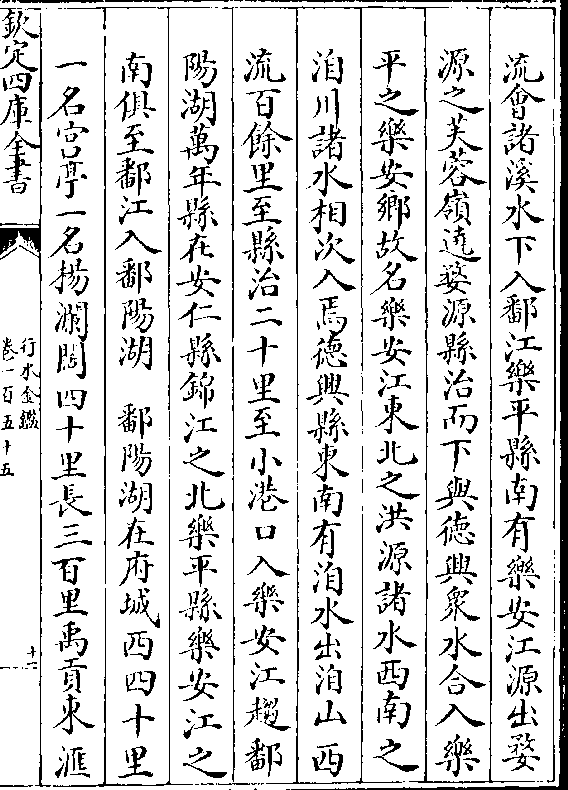 流會諸溪水下入鄱江樂平縣南有樂安江源出婺
源之芙蓉嶺遶婺源縣治而下與德興衆水合入樂
平之樂安鄉故名樂安江東北之洪源諸水西南之
洎川諸水相次入焉德興縣東南有洎水出洎山西
流百餘里至縣治二十里至小港口入樂安江趨鄱
陽湖萬年縣在安仁縣錦江之北樂平縣樂安江之
南俱至鄱江入鄱陽湖　鄱陽湖在府城西四十里
一名宫亭一名揚瀾闊四十里長三百里禹貢東滙
欽定四庫全書
行水金鑑
卷一百五十五
十二